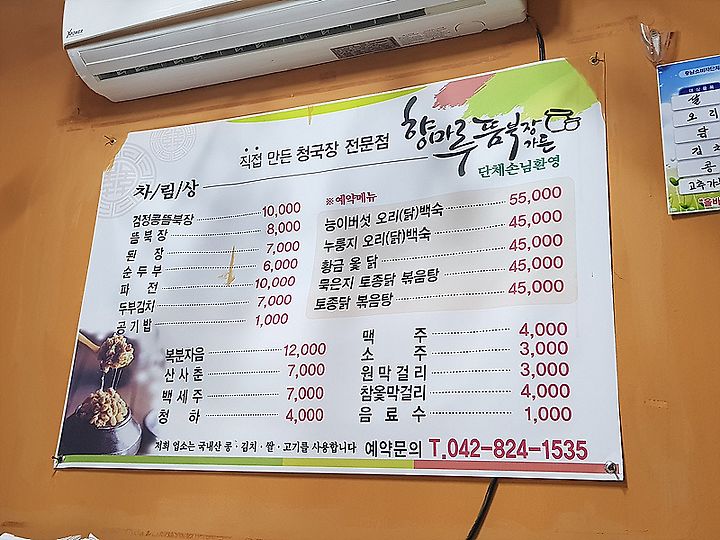 직접 만든 청국장 전문점
향마루뜸북장
가든
단체손님환영
차/림/상
검정콩뜸북장 10,000
뜸북장 8,000
된장 7,000
순두부 6,000
파전 10,000
두부김치 7,000
공기밥 1,000
※예약메뉴
능이버섯 오리(닭)백숙 55,000
누룽지 오리(닭)백숙 45,000
황금 옻 닭 45,000
묵은지 토종닭 볶음탕 45,000
토종닭 볶음탕 45,000
복분자음 12,000
산사춘 7,000
백세주 7,000
청하 4,000
맥주 4,000
소주 3,000
원막걸리 3,000
참옻막걸리 4,000
음료수 1,000
저희 업소는 국내산 콩·김치·쌀·고기를 사용합니다 예약문의 T.042-824-1535
쌀
오리
닭
김치
콩
고추가